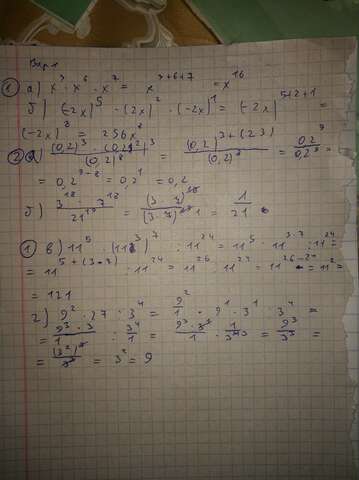 Вар 1
① а) x³ · x⁶ · x⁷ = x³⁺⁶⁺⁷ = x¹⁶
б) (-2x)⁵ · (-2x)² · (-2x)¹ = (-2x)⁵⁺²⁺¹ =
(-2x)⁸ = 256x⁸
② а) (0,2)³ · (0,2²)³ / (0,2)⁸ = (0,2)³⁺⁽²³⁾ / (0,2)⁸ = 0,2⁹ / 0,2⁸ =
= 0,2⁹⁻⁸ = 0,2¹ = 0,2
б) 3¹⁸ · 7¹⁸ / 21¹⁹ = (3·7)¹⁸ / (3·7)¹⁹ = 1 / 21
① в) 11⁵ · (11³)⁷ : 11²⁴ = 11⁵ · 11³·⁷ : 11²⁴ =
= 11⁵⁺⁽³·⁷⁾ : 11²⁴ = 11²⁶ : 11²⁴ = 11²⁶⁻²⁴ = 11² =
= 121
г) 9² · 27 : 3⁴ = 9² / 1 · 9¹ · 3¹ : 3⁴ =
= 9³ · 3 / 1 : 3⁴ / 1 = 9³ · 3¹ / 1 · 1 / 3⁴ = 9³ / 3³ =
= (3²)³ / 3³ = 3² = 9